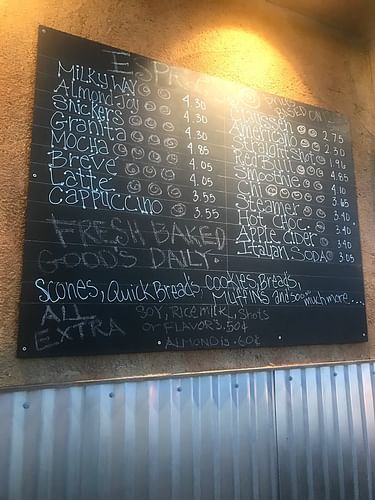 ESPRESSO
MILKY WAY 4.30
Almond Joy 4.30
Snickers 4.30
Granita 4.85
MOCHA 4.05
Breve 4.05
Latte 3.55
CAPPUCCINO 3.55
BASED ON
Americano 2.75
Straight Shot
Red 1.96
Smoothie 4.85
Chi 4.10
Steamer 3.65
Hot Choc. 3.40
Apple Cider 3.40
Italian SODA 3.05
FRESH BAKED
GOODS DAILY
SCONES, QUICK BREADS, COOKIES, Breads,
MUFFINS and soo much more...
ALL
EXTRA
SOY, RICE MILK, Shots
or FLAVORS .50¢
ALMOND is .60¢